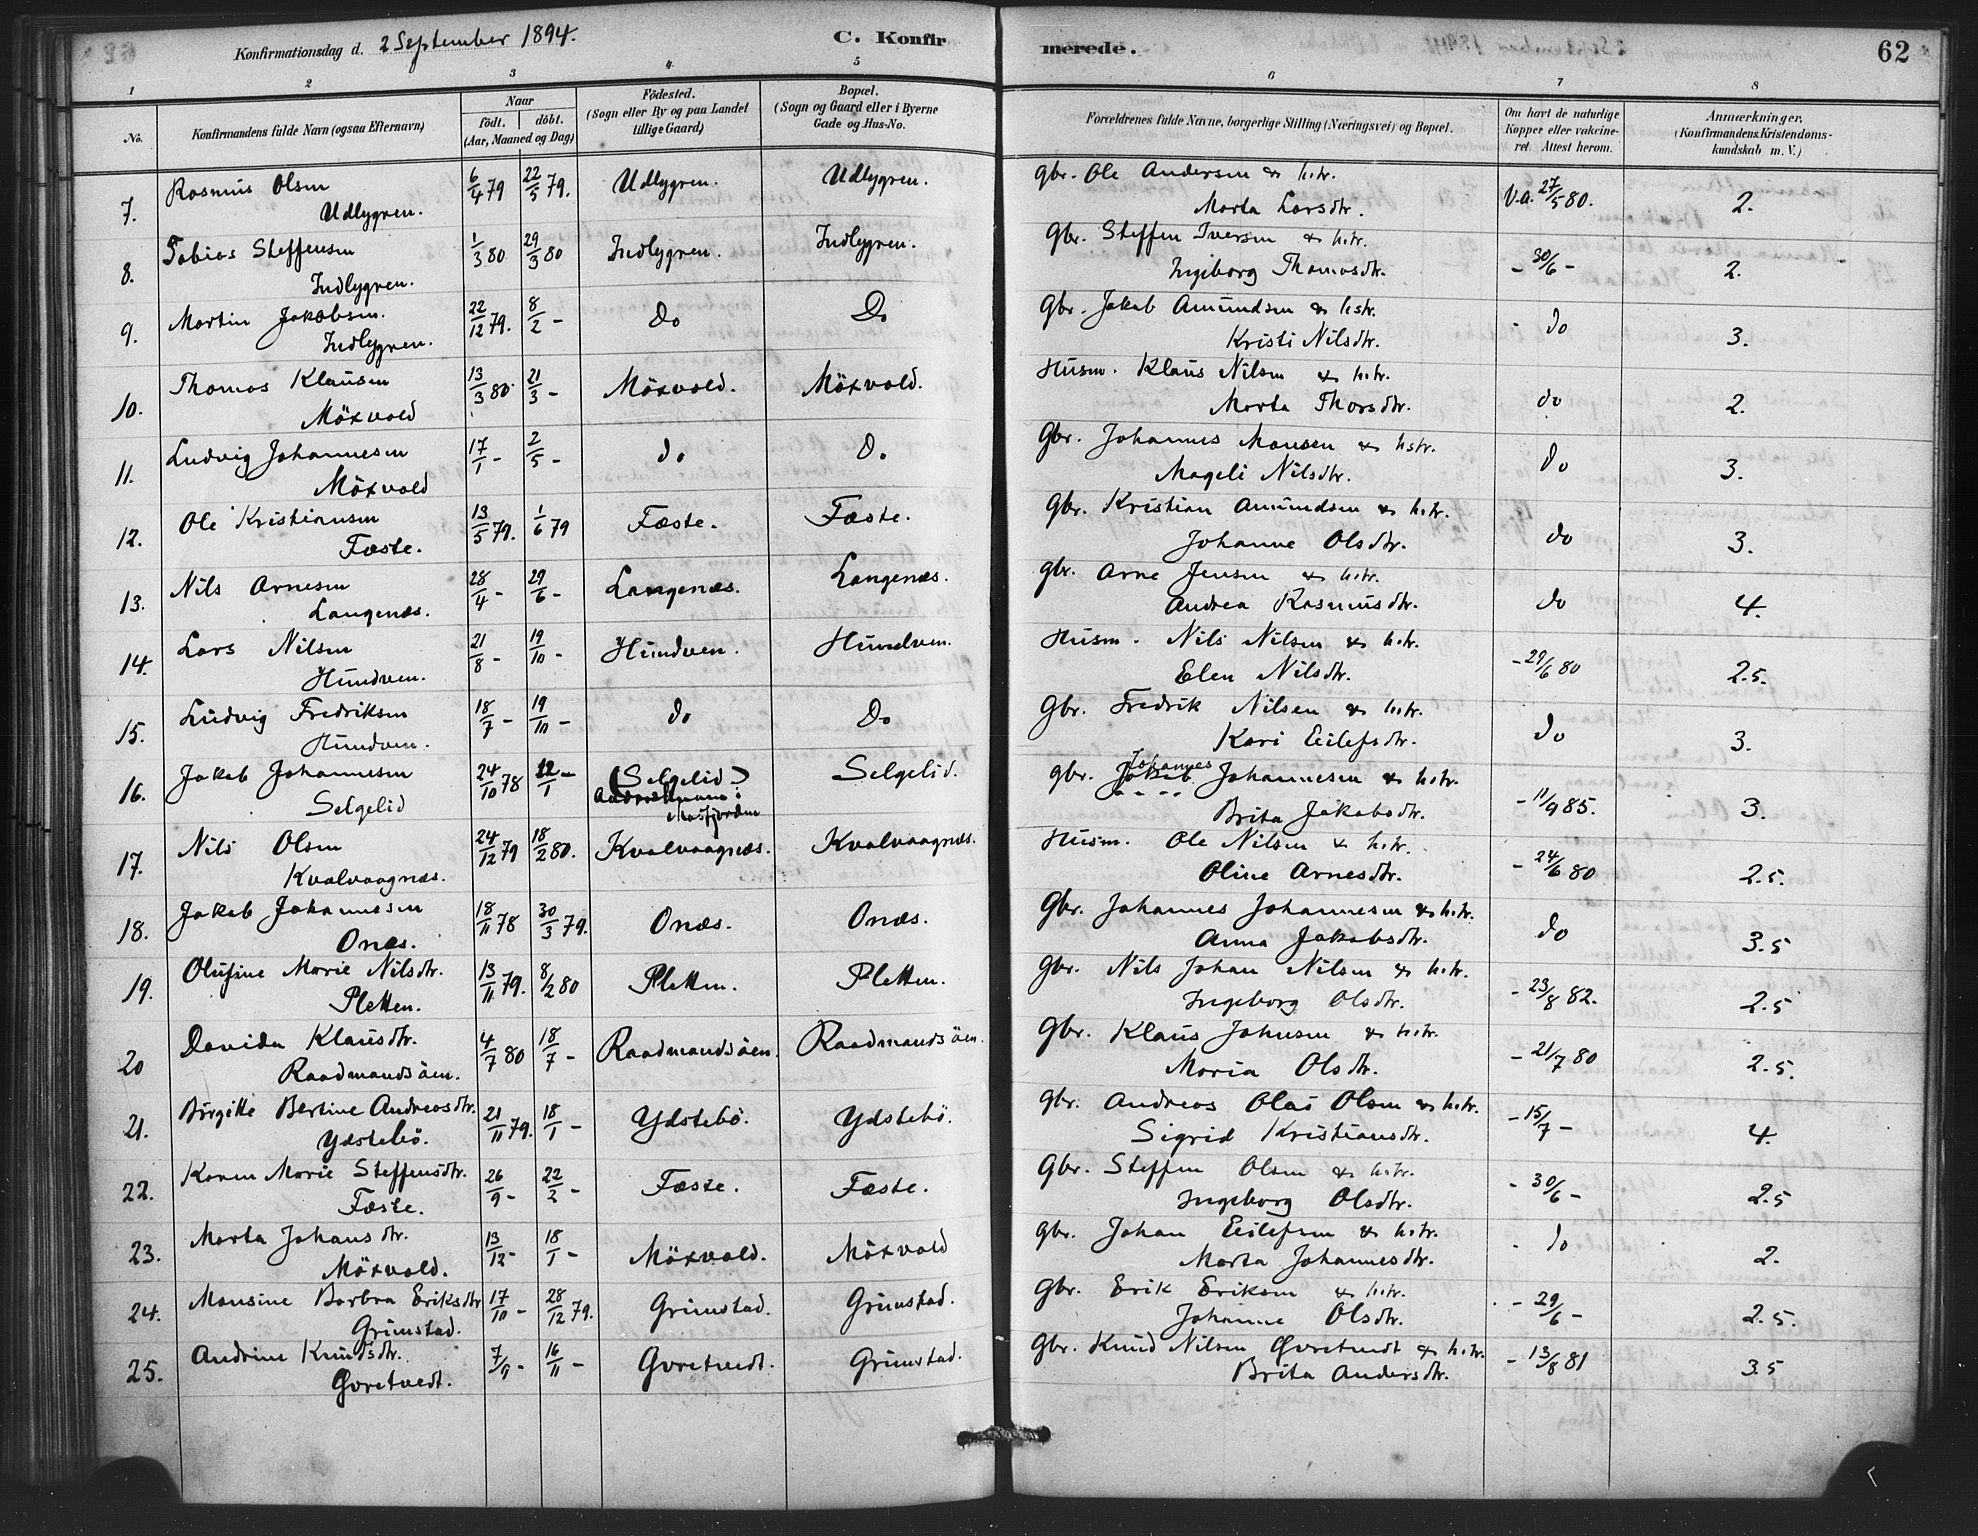 Konfirmationsdag d. 2 September 1894.
C. Konfirmerede.
62
1 2 3 4 5 6 7 8
No.
Konfirmandens fulde Navn (ogsaa Efternavn)
Naar
födt. döbt.
(Aar, Maaned og Dag)
Födested.
(Sogn eller By og paa Landet
tillige Gaard)
Bopæl.
(Sogn og Gaard eller i Byerne
Gade og Hus-No.
Forældrenes fulde Navne, borgerlige Stilling (Næringsvei) og Bopæl.
Om havt de naturlige
Kopper eller vakcine-
ret. Attest herom.
Anmærkninger.
(Konfirmandens Kristendoms-
kundskab m. V.)
7. Rasmus Olsen 6/4 79 22/5 79. Udlygren. Udlygren. Gbr. Ole Andersen & h.tr. V.a. 27/5 80. 2.
Udlygren. Marta Larsdtr.
8. Tobias Steffensen 1/3 80 29/3 80 Indlygren. Indlygren. Gbr. Steffen Iversen & h.tr. - 30/6 - 2.
Indlygren. Ingiborg Thomasdtr.
9. Martin Jakobsen. 22/12 79. 8/2 - do Do Gbr. Jakob Amundsen & hstr. - do 3.
Indlygren. Kristi Nilsdtr.
10. Thomas Klausen 13/3 80 21/3 - Möxvold. Möxvold. Husm. Klaus Nilsen & h.tr. do 2.
Möxvold Marta Thorsdtr.
11. Ludvig Johannesen 17/1 - 2/5 - do Do Gbr. Johannes Monsen & hstr. do 3.
Möxvold Mageli Nilsdtr.
12. Ole Kristiansen 13/5 79. 1/6 79 Fæste. Fæste. Gbr. Kristian Amundsen & h.tr. do 3.
Fæste. Johanne Olsdtr.
13. Nils Arnesen 28/4 - 29/6 - Langenæs. Langenæs. Gbr. Arne Jensen & h.tr. do 4.
Langenæs. Andrea Rasmusdtr.
14. Lars Nilsen 21/8 - 19/10 - Hundven. Hundven. Husm. Nils Nilsen & h.tr. - 29/6 80 2.5.
Hundven. Elen Nilsdtr.
15. Ludvig Fredriksen 18/7 - 19/10 - do Do Gbr. Fredrik Nilsen & h.tr. do 3.
Hundven. Kari Eilefsdtr.
16. Jakob Johannesen 24/10 78 12/1 - (Selgelid) Selgelid. Gbr. Johannes Jakob Johannesen & h.tr. - 11/9 85. 3.
Selgelid Masfjorden Brita Jakobsdtr.
17. Nils Olsen 24/12 79 18/2 80. Kvalvaagnæs. Kvalvaagnæs. Husm. Ole Nilsen & h.tr. - 24/6 80 2.5.
Kvalvaagnæs. Oline Arnesdtr.
18. Jakob Johannesen 18/11 78 30/3 79. Onæs. Onæs. Gbr. Johannes Johannesen & h.tr. do 3.5
Onæs. Anna Jakobsdtr.
19. Olufine Marie Nilsdtr. 13/11 79. 8/2 80 Pletten. Pletten. Gbr. Nils Johan Nilsen & h.tr. - 23/8 82. 2.5
Pletten. Ingeborg Olsdtr.
20 Davida Klausdtr. 4/7 80 18/7 - Raadmandsöen. Raadmandsöen. Gbr. Klaus Johnsen & h.tr. - 21/7 80 2.5.
Raadmandsöen. Maria Olsdtr.
21. Birgitte Bertine Andreasdtr. 21/11 79. 18/1 - Ydstebö. Ydstebö. Gbr. Andreas Olai Olsen & h.tr. - 15/7 - 4.
Ydstebö. Sigrid Kristiansdtr.
22. Karen Marie Steffensdtr. 26/9 - 22/2 - Fæste. Fæste. Gbr. Steffen Olsen & h.tr. - 30/6 - 2.5
Fæste. Ingeborg Olsdtr.
23. Marta Johansdtr. 13/12 - 18/1 - Möxvold. Möxvold Gbr. Johan Eilefsen & h.tr. - do 2.
Möxvold. Marta Johannesdtr.
24. Monsine Barbra Eriksdtr 17/10 - 28/12 79. Grimstad. Grimstad. Gbr. Erik Eriksen & h.tr. - 29/6 - 2.5.
Grimstad. Johanne Olsdtr.
25. Andrine Knudsdtr. 7/9 - 16/11 - Gvretvedt. Grimstad. Gbr. Knud Nilsen Gvretvedt & h.tr. - 13/8 81 3.5
Gvretvedt. Brita Andersdtr.